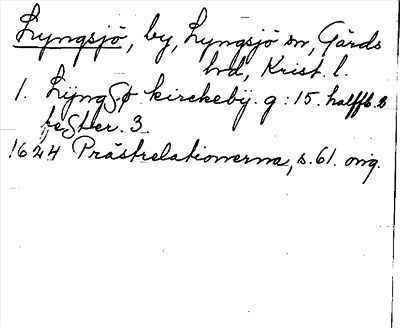 Lyngsjö, by, Lyngsjö sn, Gärds
hd, Krist. l.
1. Lijngsø kirckebÿ. g: 15. halffb. 2
fester. 3.
1624 Prästrelationerna, s. 61. orig.